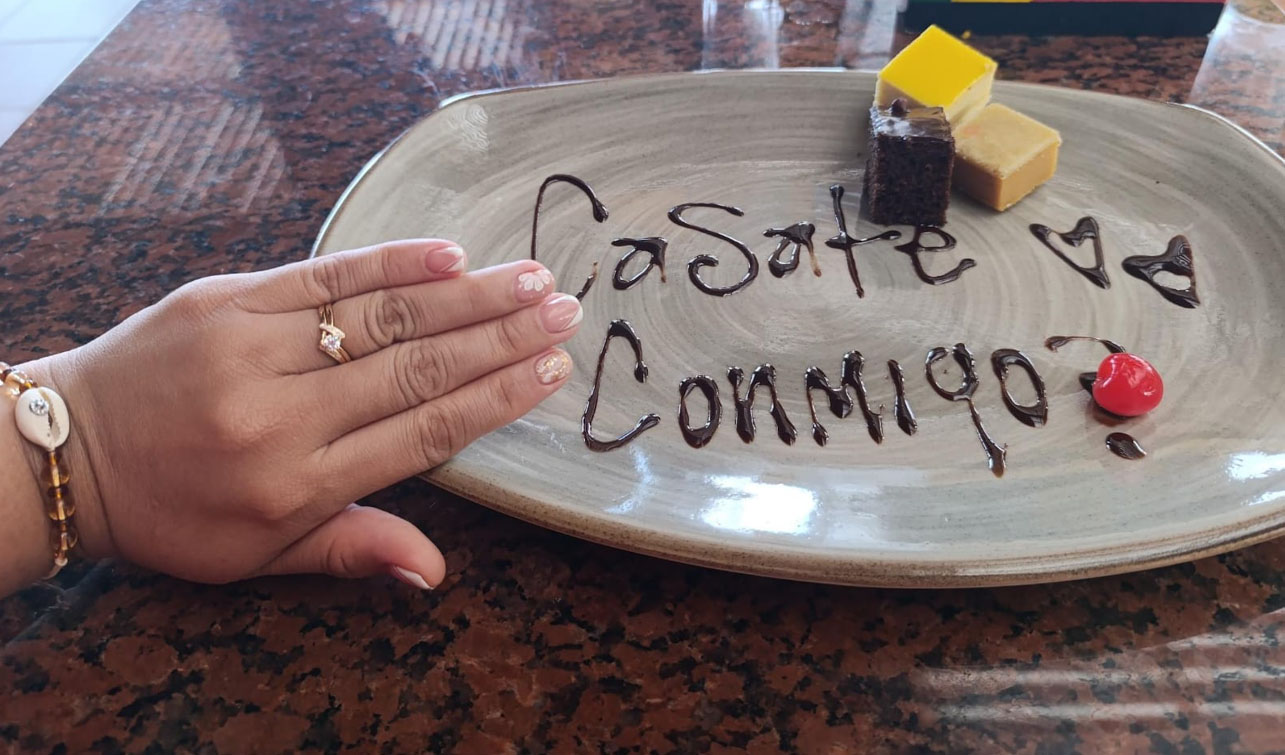 Casate
Conmigo?